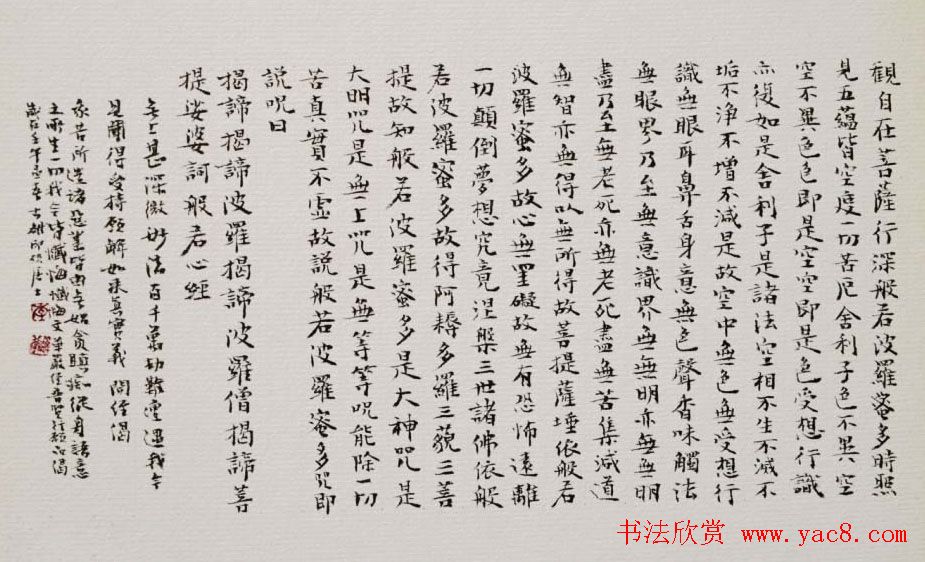 觀自在菩薩行深般若波羅蜜多時照
見五蘊皆空度一切苦厄舍利子色不異空
空不異色色即是空空即是色受想行識
亦復如是舍利子是諸法空相不生不滅不
垢不淨不增不減是故空中無色無受想行
識無眼耳鼻舌身意無色聲香味觸法
無眼界乃至無意識界無無明亦無無明
盡乃至無老死亦無老死盡無苦集滅道
無智亦無得以無所得故菩提薩埵依般若
波羅蜜多故心無罣礙故無有恐怖遠離
一切顛倒夢想究竟涅槃三世諸佛依般
若波羅蜜多故得阿耨多羅三藐三菩
提故知般若波羅蜜多是大神咒是
大明咒是無上咒是無等等咒能除一切
苦真實不虛故說般若波羅蜜多咒即
說呪曰
揭諦揭諦波羅揭諦波羅僧揭諦菩
提娑婆訶般若心經
無上甚深微妙法百千萬劫難遭遇我今
見聞得受持願解如來真實義 開經偈
我昔所造諸惡業皆由無始貪瞋癡從身語意
之所生一切我今皆懺悔 懺悔文 華嚴經普賢行願品偈
歲在壬午
书法欣赏 www.yac8.com